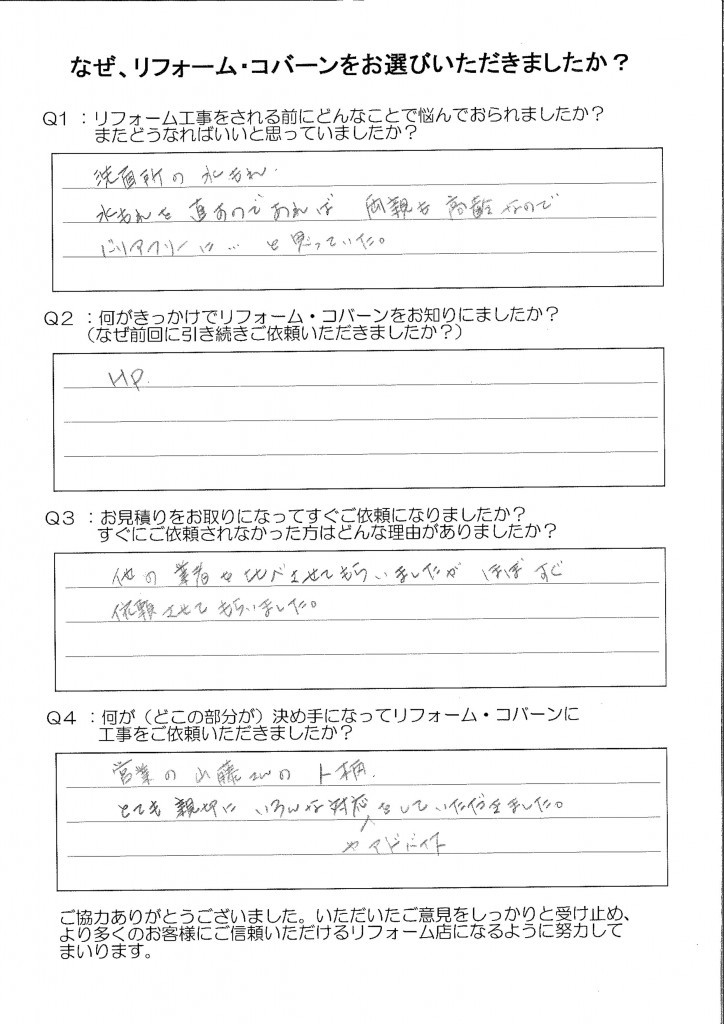 なぜ、リフォーム・コバーンをお選びいただきましたか？
Q1 ：リフォーム工事をされる前にどんなことで悩んでおられましたか？
またどうなればいいと思っていましたか？
洗面所の水もれ.
水もれを直すのであれば 両親も高齢なので
バリアフリーに… と思っていた。
Q2 ：何がきっかけでリフォーム・コバーンをお知りにましたか？
（なぜ前回に引き続きご依頼いただきましたか？）
HP.
Q3 ：お見積りをお取りになってすぐご依頼になりましたか？
すぐにご依頼されなかった方はどんな理由がありましたか？
他の業者も比べさせてもらいましたが ほぼすぐ
依頼させてもらいました。
Q4 ：何が（どこの部分が）決め手になってリフォーム・コバーンに
工事をご依頼いただきましたか？
営業の山藤さんの人柄.
とても親切にいろんな対応をしていただきました。
やアドバイス
ご協力ありがとうございました。いただいたご意見をしっかりと受け止め、
より多くのお客様にご信頼いただけるリフォーム店になるように努力して
まいります。